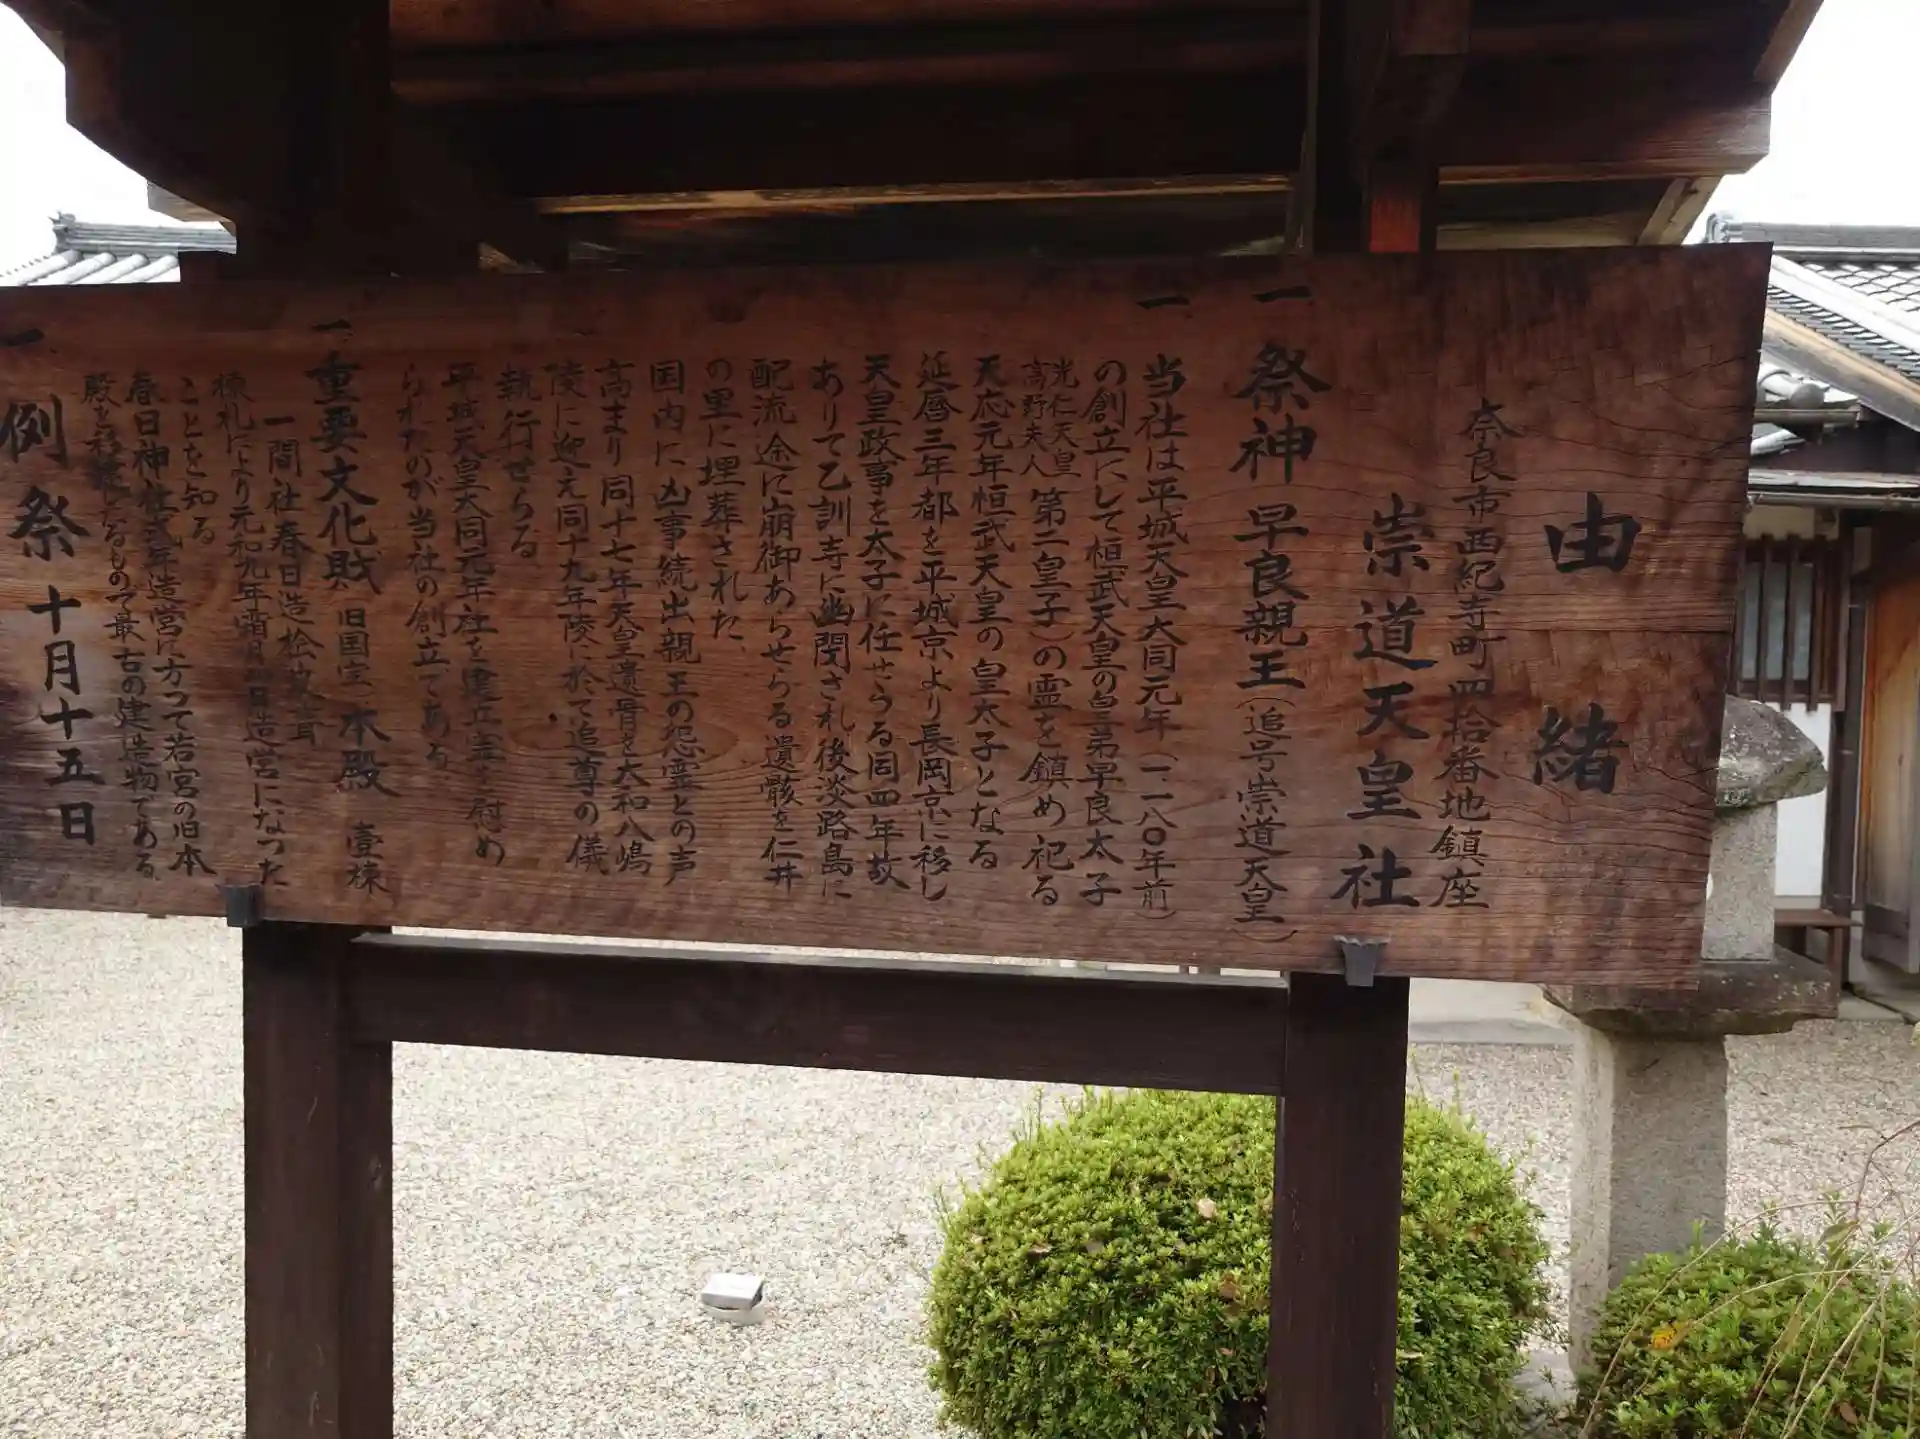 由緒
奈良市西紀寺町四拾番地鎮座
崇道天皇社
一 祭神 早良親王(追号崇道天皇)
一 当社は平城天皇大同元年(一一八〇年前)
の創立にして桓武天皇の皇弟早良太子
光仁天皇
高野夫人 第二皇子)の霊を鎮め祀る
天応元年桓武天皇の皇太子となる
延暦三年都を平城京より長岡京に移し
天皇政事を太子に任せらる同四年故
ありて乙訓寺に幽閉され後淡路島に
配流途に崩御あらせらる遺骸を仁井
の里に埋葬された、
国内に凶事続出親王の怨霊との声
高まり同十七年天皇遺骨を大和八嶋
陵に迎え同十九年陵に於て追尊の儀
執行せらる
平城天皇大同元年社を建立霊を慰め
られたのが当社の創立である
一 重要文化財 旧国宝 本殿 壹棟
一間社春日造桧皮葺
棟札により元和九年霜月 日造営になった
ことを知る
春日神社式年造営に方つて若宮の旧本
殿を移建したるもので最古の建造物である
一 例祭 十月十五日